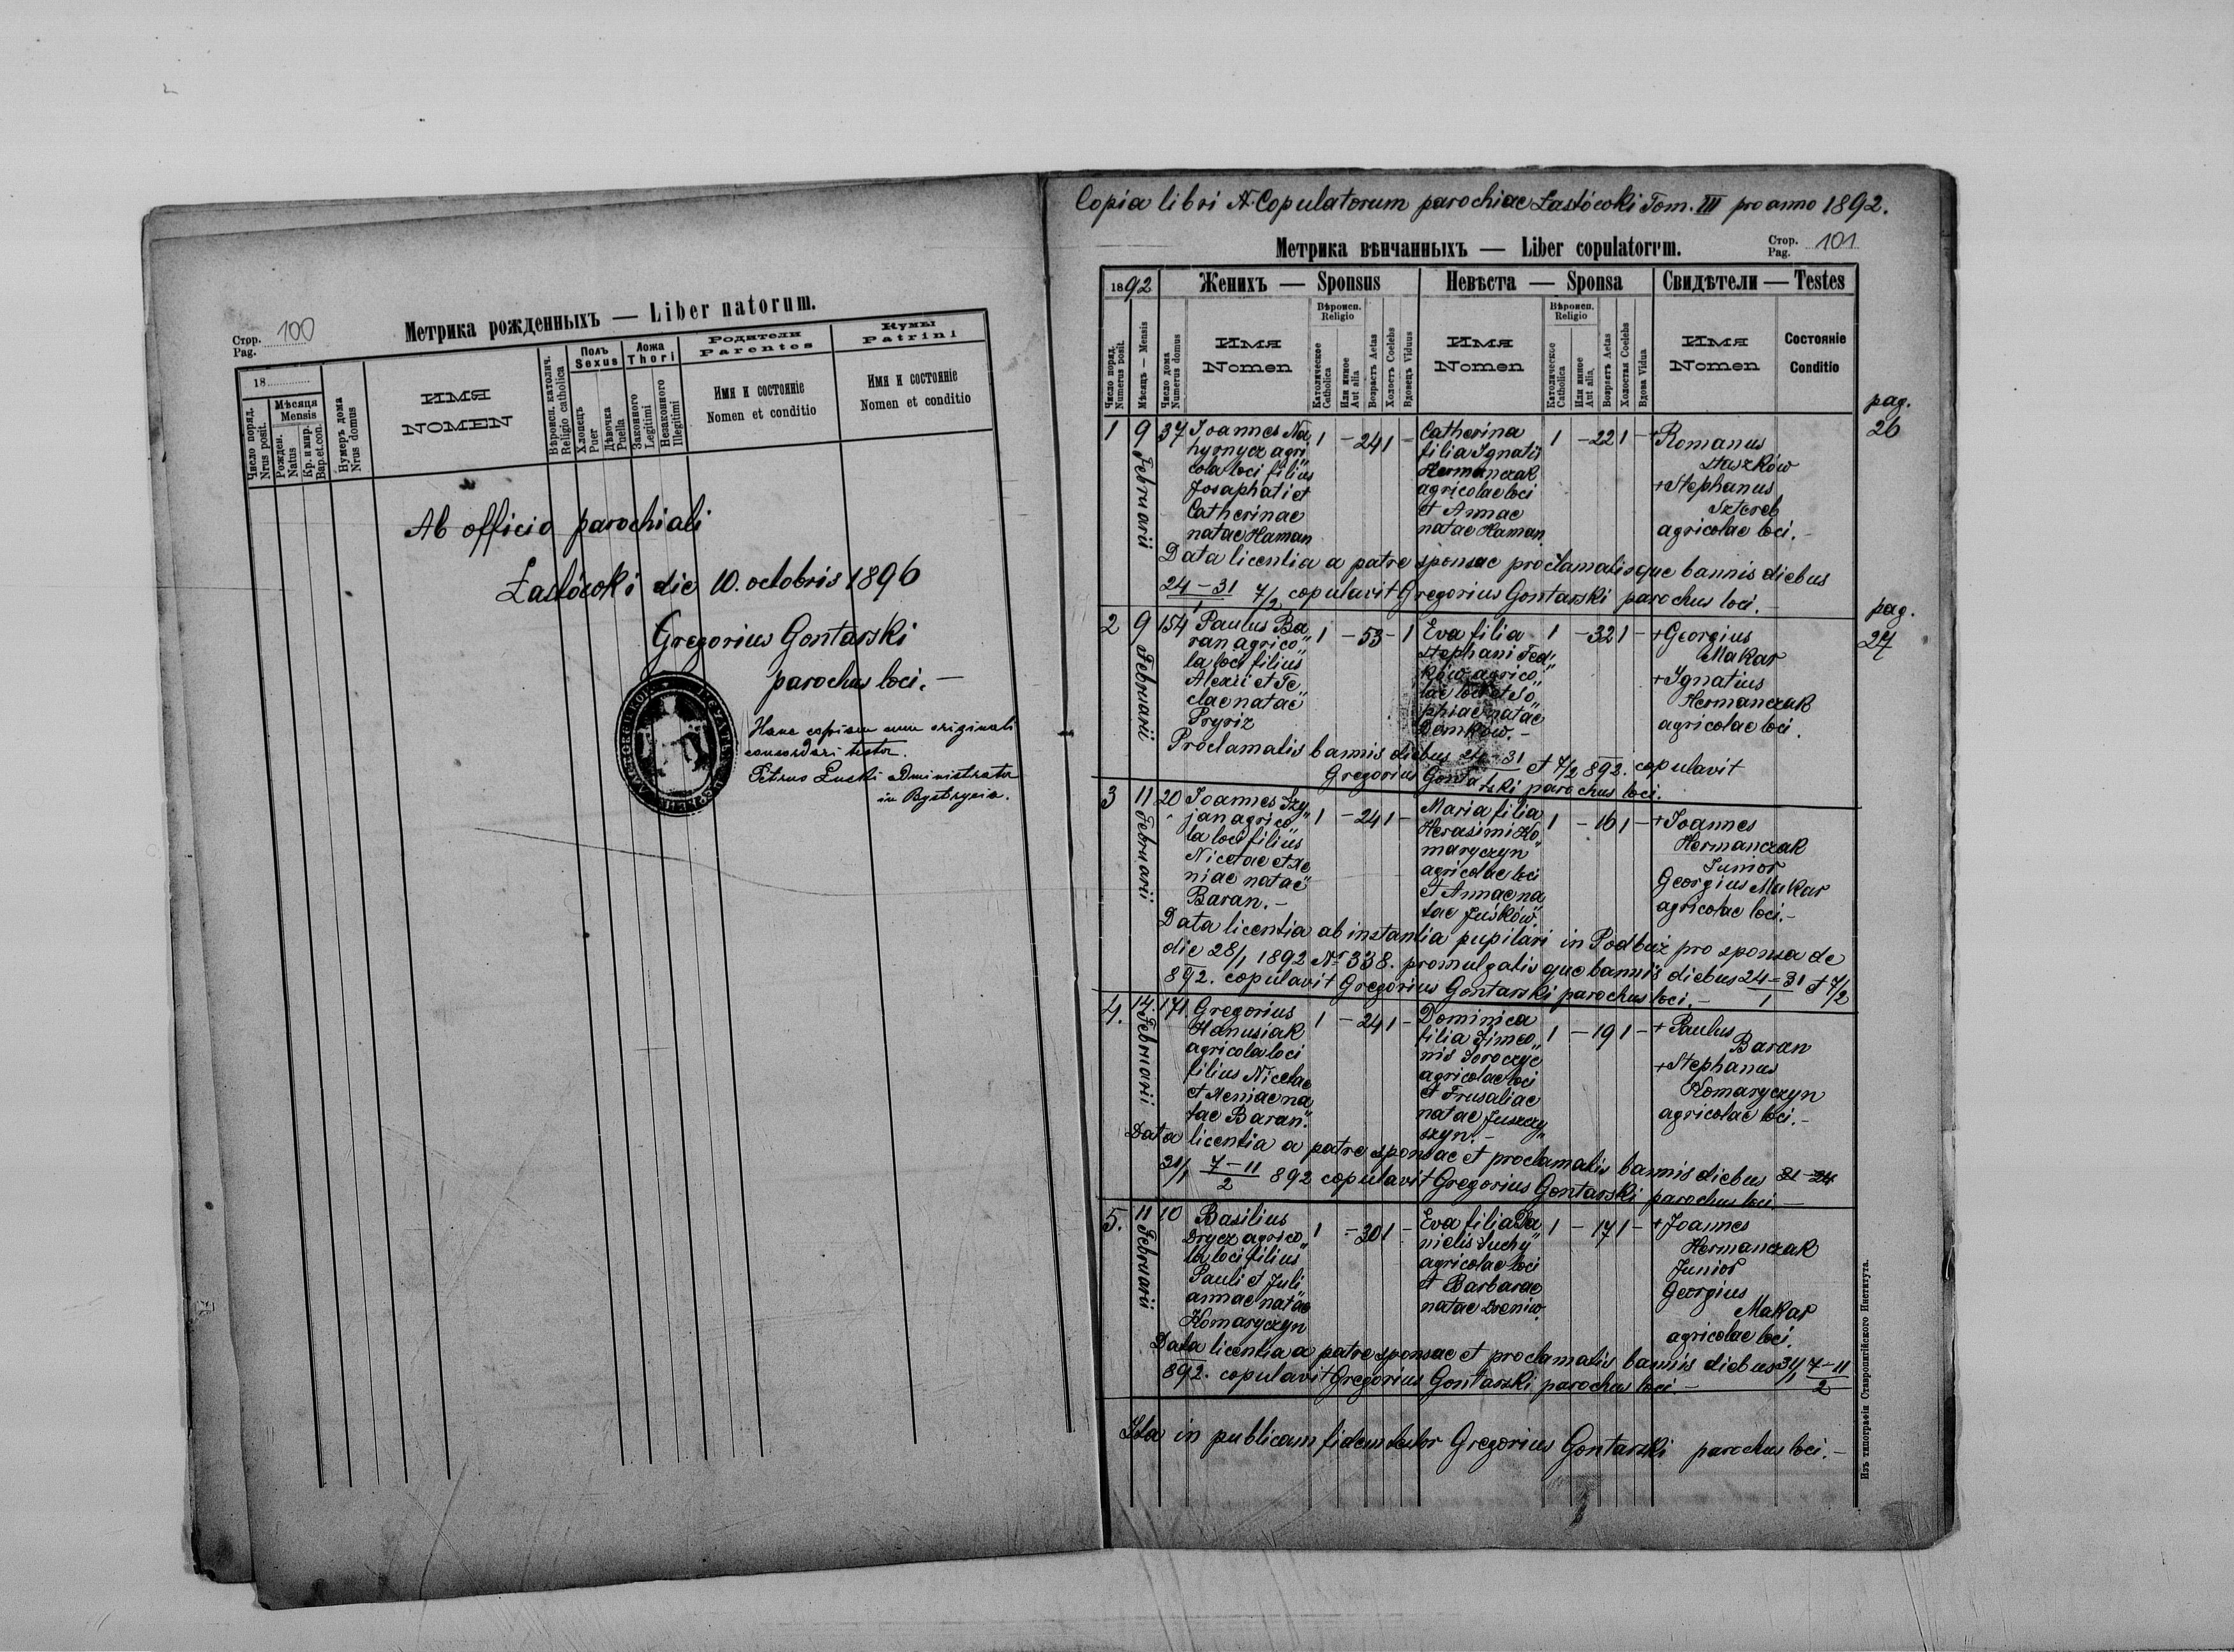 Стор.
Pag. 100
Метрика рожденныхъ — Liber natorum.
18
Число поряд.
Nrus posit.
Мѣсяця
Mensis
Рожден.
Natus
Кр. и мир.
Bap. et con.
Нумеръ дома
Nrus domus
ИМЯ
NOMEN
Вѣроисп. католич.
Religio catholica
Полъ
Sexus
Хлопець
Puer
Дѣвочка
Puella
Ложа
Thori
Законного
Legitimi
Незаконного
Illegitimi
Родители
Parentes
Имя и состоянie
Nomen et conditio
Кумы
Patrini
Имя и состоянie
Nomen et conditio
Ab officio parochiali
Łastówki die 10. octobris 1896
Gregorius Gontarski
parochus loci. —
Hanc copiam cum originali
concordari testor.
Petrus Luski administrator
in Bystrycia.
Copia libri A. Copulatorum parochiae Łastówki Tom. III pro anno 1892.
Метрика вѣнчанныхъ — Liber copulatorum.
Стор.
Pag. 101
1892
Женихъ — Sponsus
Невѣста — Sponsa
Свидѣтели — Testes
Число поряд.
Numerus posit.
Мѣсяцъ — Mensis
Число дома
Numerus domus
Имя
Nomen
Вѣроисп.
Religio
Католическое
Catholica
Или иное
Aut alia
Возрастъ Aetas
Холостъ Coelebs
Вдовецъ Viduus
Имя
Nomen
Вѣроисп.
Religio
Католическое
Catholica
Или иное
Aut alia.
Возрастъ Aetas
Холостая Coelebs
Вдова Vidua
Имя
Nomen
Состоянie
Conditio
pag.
26
1 9 Februarii 37
Joannes Na„
hyrnycz agri„
cola loci filius
Josaphati et
Catherinae
natae Haman
1 – 24 1 –
Catherina
filia Ignatii
Hermanczak
agricolae loci
et Annae
natae Haman
1 – 22 1 –
+Romanus
Staszków
+Stephanus
Sztereb
agricolae loci. –
Data licentia a patre sponsae proclamatisque bannis diebus
24–31/1 7/2 copulavit Gregorius Gontarski parochus loci. –
pag.
27
2 9 Februarii 154
Paulus Ba„
ran agrico„
la loci filius
Alexii et Te„
clae natae
Pryriz
1 – 53 – 1
Eva filia
Stephani Fed„
ków agrico„
lae loci et So„
phiae natae
Demków. –
1 – 32 1 –
+Georgius
Makar
+Ignatius
Hermanczak
agricolae loci.
Proclamatis bannis diebus 24–31 et 7/2 892. copulavit
Gregorius Gontarski parochus loci.
3 11 Februarii 20
Joannes Szy„
jan agrico„
la loci filius
Nicetae et Xe„
niae natae
Baran. –
1 – 24 1 –
Maria filia
Herasimi Ko„
maryczyn
agricolae loci
et Annae na„
tae Juśków
1 – 16 1 –
+Joannes
Hermanczak
Junior
Georgius Makar
agricolae loci. –
Data licentia ab instantia pupilari in Podbuż pro sponsa de
die 28/1 1892 № 338. promulgatisque bannis diebus 24–31/1 et 7/2
892. copulavit Gregorius Gontarski parochus loci. –
4. 14. Februarii 171
Gregorius
Hanusiak
agricola loci
filius Nicetae
et Xeniae na„
tae Baran.
1 – 24 1 –
Dominica
filia Simeo„
nis Soroczyc
agricolae loci
et Frusaliae
natae Juszczy„
szyn. –
1 – 19 1 –
+Paulus
Baran
+Stephanus
Komaryczyn
agricolae loci. –
Data licentia a patre sponsae et proclamatis bannis diebus
31/1 7–11/2 892 copulavit Gregorius Gontarski parochus loci. –
5. 11 Februarii 10
Basilius
Drycz agrico„
la loci filius
Pauli et Juli„
annae natae
Komaryczyn
1 – 30 1 –
Eva filia Da„
nielis Suchy
agricolae loci
et Barbarae
natae Seniw.
1 – 17 1 –
+Joannes
Hermanczak
Junior
Georgius
Makar
agricolae loci.
Data licentia a patre sponsae et proclamatis bannis diebus 31/1 7–11/2
892. copulavit Gregorius Gontarski parochus loci. –
Ita in publicam fidem testor Gregorius Gontarski parochus loci. –
Изъ типографiи Ставропигiйского Института.